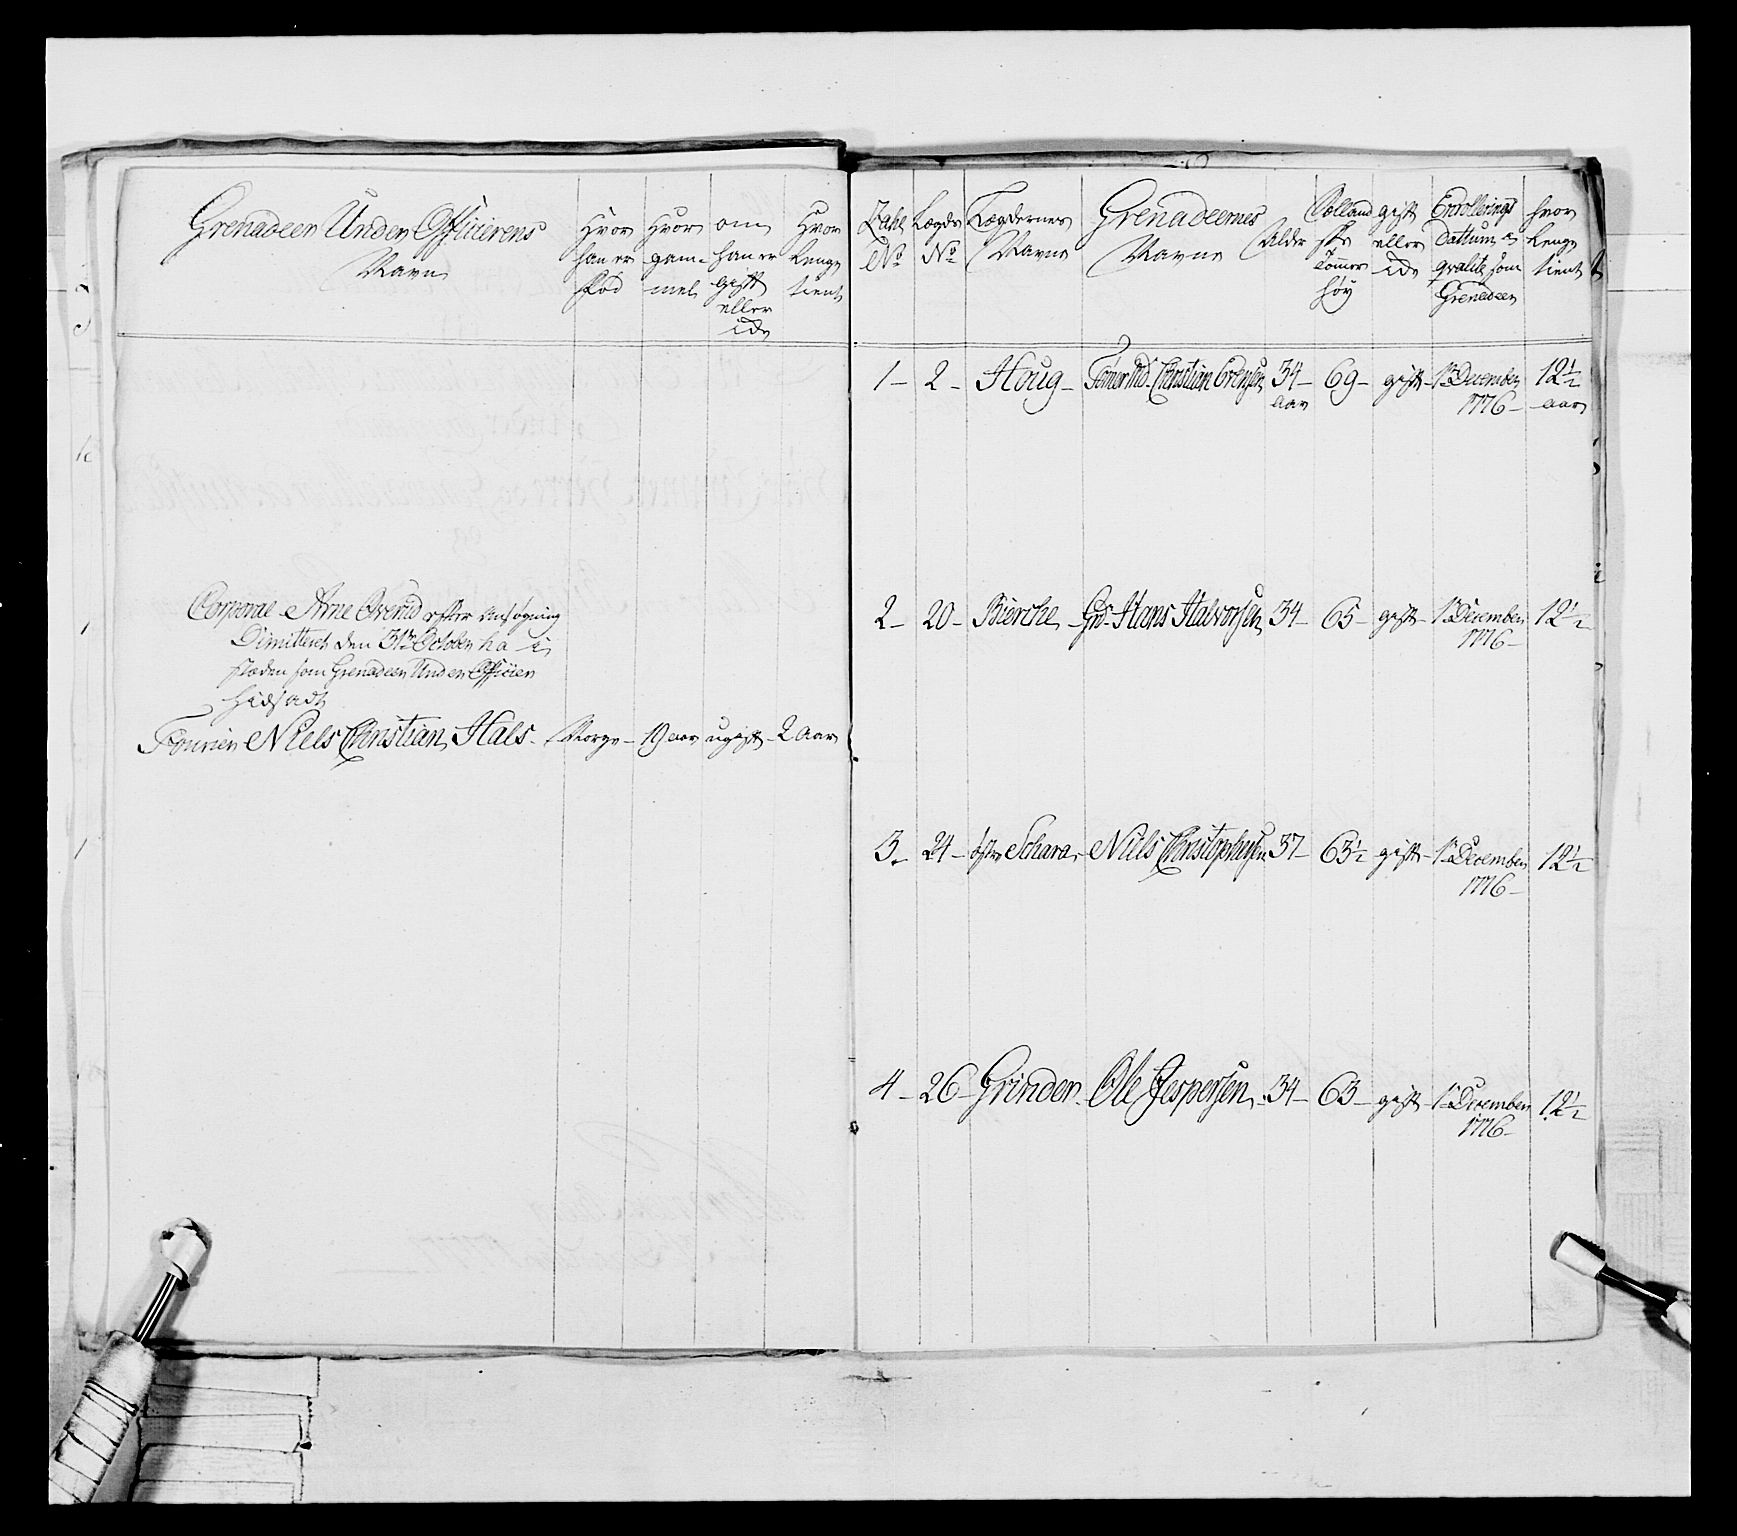 Grenadeer Under Officiirens
Navn
Hvor
han er
fød
Hvor
gam-
mel
om
han er
gift
eller
ide
Hvor
Lenge
tient
Corporal Arne Overud efter Ansøgning
Dimitteret den 31te October h a i
stæden som Grenadeer Under Officier
hidsadt
Fourier Niels Christian Hals - Norge - 19 aar ugift - 2 aar
Zahl
No
Lægds
No
Lægdernes
Navne
Grenadeernes
Navne
Alder
Sælland
ske
Tommer
høy
gift
eller
ide
Enrollerings
Dattum og
qvalite som
Grenadeer
hvor
Lenge
tient
1 - 2 - Houg - Tømermd. Christian Evensen 34 - 69 - gift - 1te December 12 1/2
aar 1776 - aar
2 - 20 - Bierche - Grd. Hans Halvorsen 34 - 65 - gift - 1te December 12 1/2
1776 -
3 - 24 - østre Schara - Niels Christophersen 37 - 63 1/2 gift - 1te December 12 1/2
1776 -
4 - 26 - Grinder - Ole Jespersen - 34 - 63 - gift - 1te December 12 1/2
1776 -